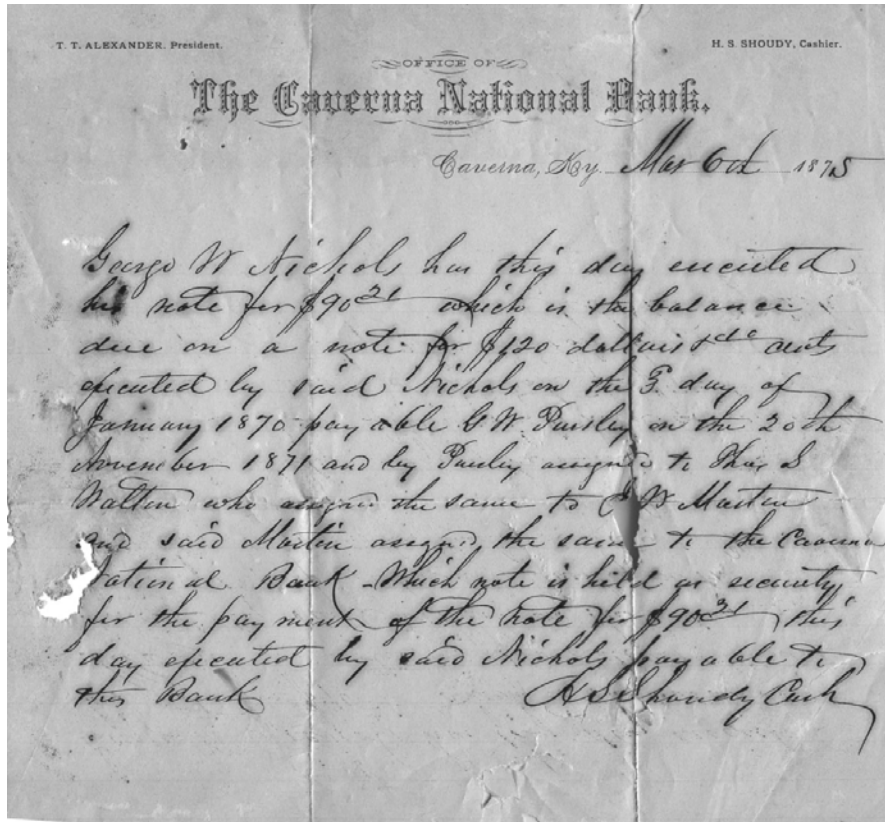 T. T. ALEXANDER, President.
H. S. SHOUDY, Cashier.
OFFICE OF
The Caverna National Bank.
Caverna, Ky. Mar 6th 1875
George W Nichols has this day executed
his note for $90 21 which is the balance
due on a note for $120 dollars & cents
executed by said Nichols on the day of
January 1870 payable G. W. Pursley on the 20th
November 1871 and by Pursley assigned to Thos S
Walton who assigned the same to J W Martin
and said Martin assigned the same to the Caverna
National Bank - Which note is held as security
for the payment of the note for $90 21 this
day executed by said Nichols payable to
this Bank
H S Shoudy Cash